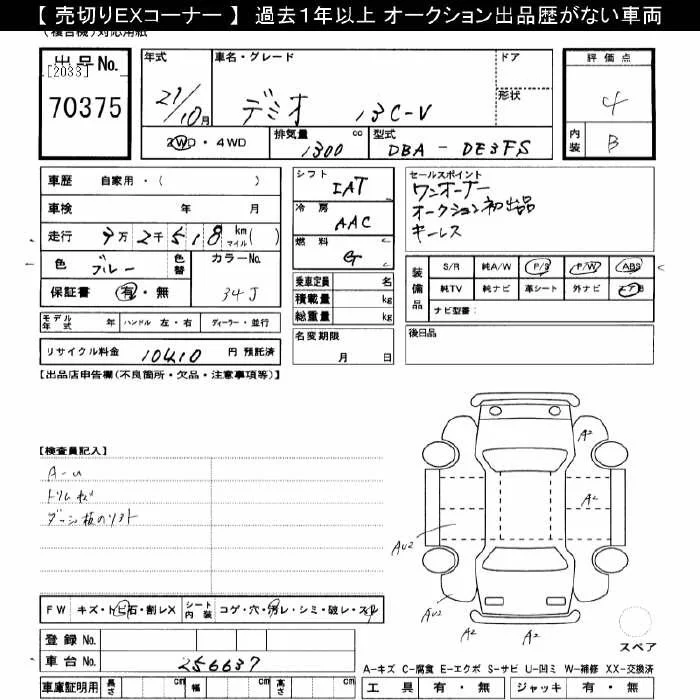 【 売切りEXコーナー 】 過去1年以上 オークション出品歴がない車両
(複合機)対応用紙
出品No.
[2033]
70375
年式
21/10月
車名・グレード
デミオ 13C-V
ドア
形状
2WD・4WD
排気量 1300 cc
型式 DBA - DE3FS
評価点
4
内装 B
車歴 自家用・( )
車検 年 月
走行 9万2千518 km マイル( )
色 ブルー 色替
カラーNo. 34J
保証書 有・無
モデル年式 年 ハンドル 左・右 ディーラー・並行
リサイクル料金 10410 円 預託済
シフト IAT
冷房 AAC
燃料 G
乗車定員 名
積載量 kg
総重量 kg
名変期限
月 日
セールスポイント
ワンオーナー
オークション初出品
キーレス
装備品
S/R 純A/W P/S P/W ABS
純TV 純ナビ 革シート 外ナビ エアB
ナビ型番:
後日品
【出品店申告欄(不良箇所・欠品・注意事項等)】
【検査員記入】
A-U
トリムキズ
FW キズ・トビ石・割レX シート内装 コゲ・穴・汚レ・シミ・破レ・スレ
登録 No.
車台 No. 256637
車庫証明用 長さ cm 幅 cm 高さ cm
A2
A2
AU2
AU2
A2
スペア
A-キズ C-腐食 E-エクボ S-サビ U-凹ミ W-補修 XX-交換済
工具 有・無 ジャッキ 有・無